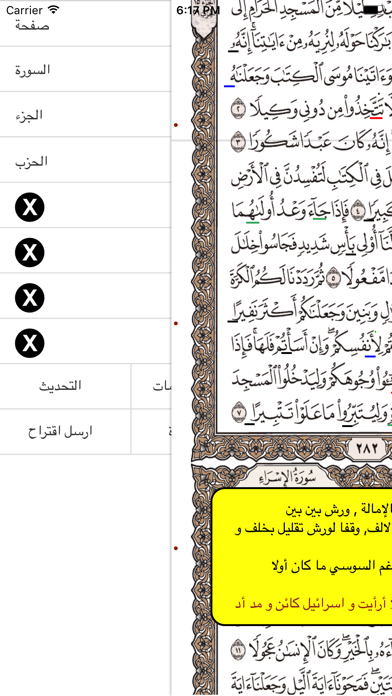 Carrier 6:17 PM
صفحة
السورة
الجزء
الحزب
X
X
X
X
التحديث
ارسل اقتراح
لًا مِّنَ ٱلْمَسْجِدِ ٱلْحَرَامِ إِلَى
بَٰرَكْنَا حَوْلَهُۥ لِنُرِيَهُۥ مِنْ ءَايَٰتِنَآ إِنَّهُۥ
وَءَاتَيْنَا مُوسَى ٱلْكِتَٰبَ وَجَعَلْنَٰهُ
تَتَّخِذُوا۟ مِن دُونِى وَكِيلًا ٢
إِنَّهُۥ كَانَ عَبْدًا شَكُورًا ٣
فِى ٱلْكِتَٰبِ لَتُفْسِدُنَّ فِى ٱلْأَرْضِ
كَبِيرًا ٤ فَإِذَا جَآءَ وَعْدُ أُولَىٰهُمَا
لَّنَآ أُو۟لِى بَأْسٍ شَدِيدٍ فَجَاسُوا۟ خِلَٰلَ
مَّفْعُولًا ٥ ثُمَّ رَدَدْنَا لَكُمُ ٱلْكَرَّةَ
وَبَنِينَ وَجَعَلْنَٰكُمْ أَكْثَرَ نَفِيرًا
لِأَنفُسِكُمْ وَإِنْ أَسَأْتُمْ فَلَهَا فَإِذَا
وُجُوهَكُمْ وَلِيَدْخُلُوا۟ ٱلْمَسْجِدَ
وَلِيُتَبِّرُوا۟ مَا عَلَوْا۟ تَتْبِيرًا ٧
٢٨٢
سُورَةُ الإِسْرَاءِ
الإمالة , ورش بين بين
الالف, وقفا لورش تقليل بخلف و
غم السوسي ما كان أولا
أرأيت و اسرائيل كائن و مد أد
بِٱلْخَيْرِ وَكَانَ ٱلْإِنسَٰنُ عَجُولًا ١١
فَمَحَوْنَآ ءَايَةَ ٱلَّيْلِ وَجَعَلْنَآ ءَايَةَ